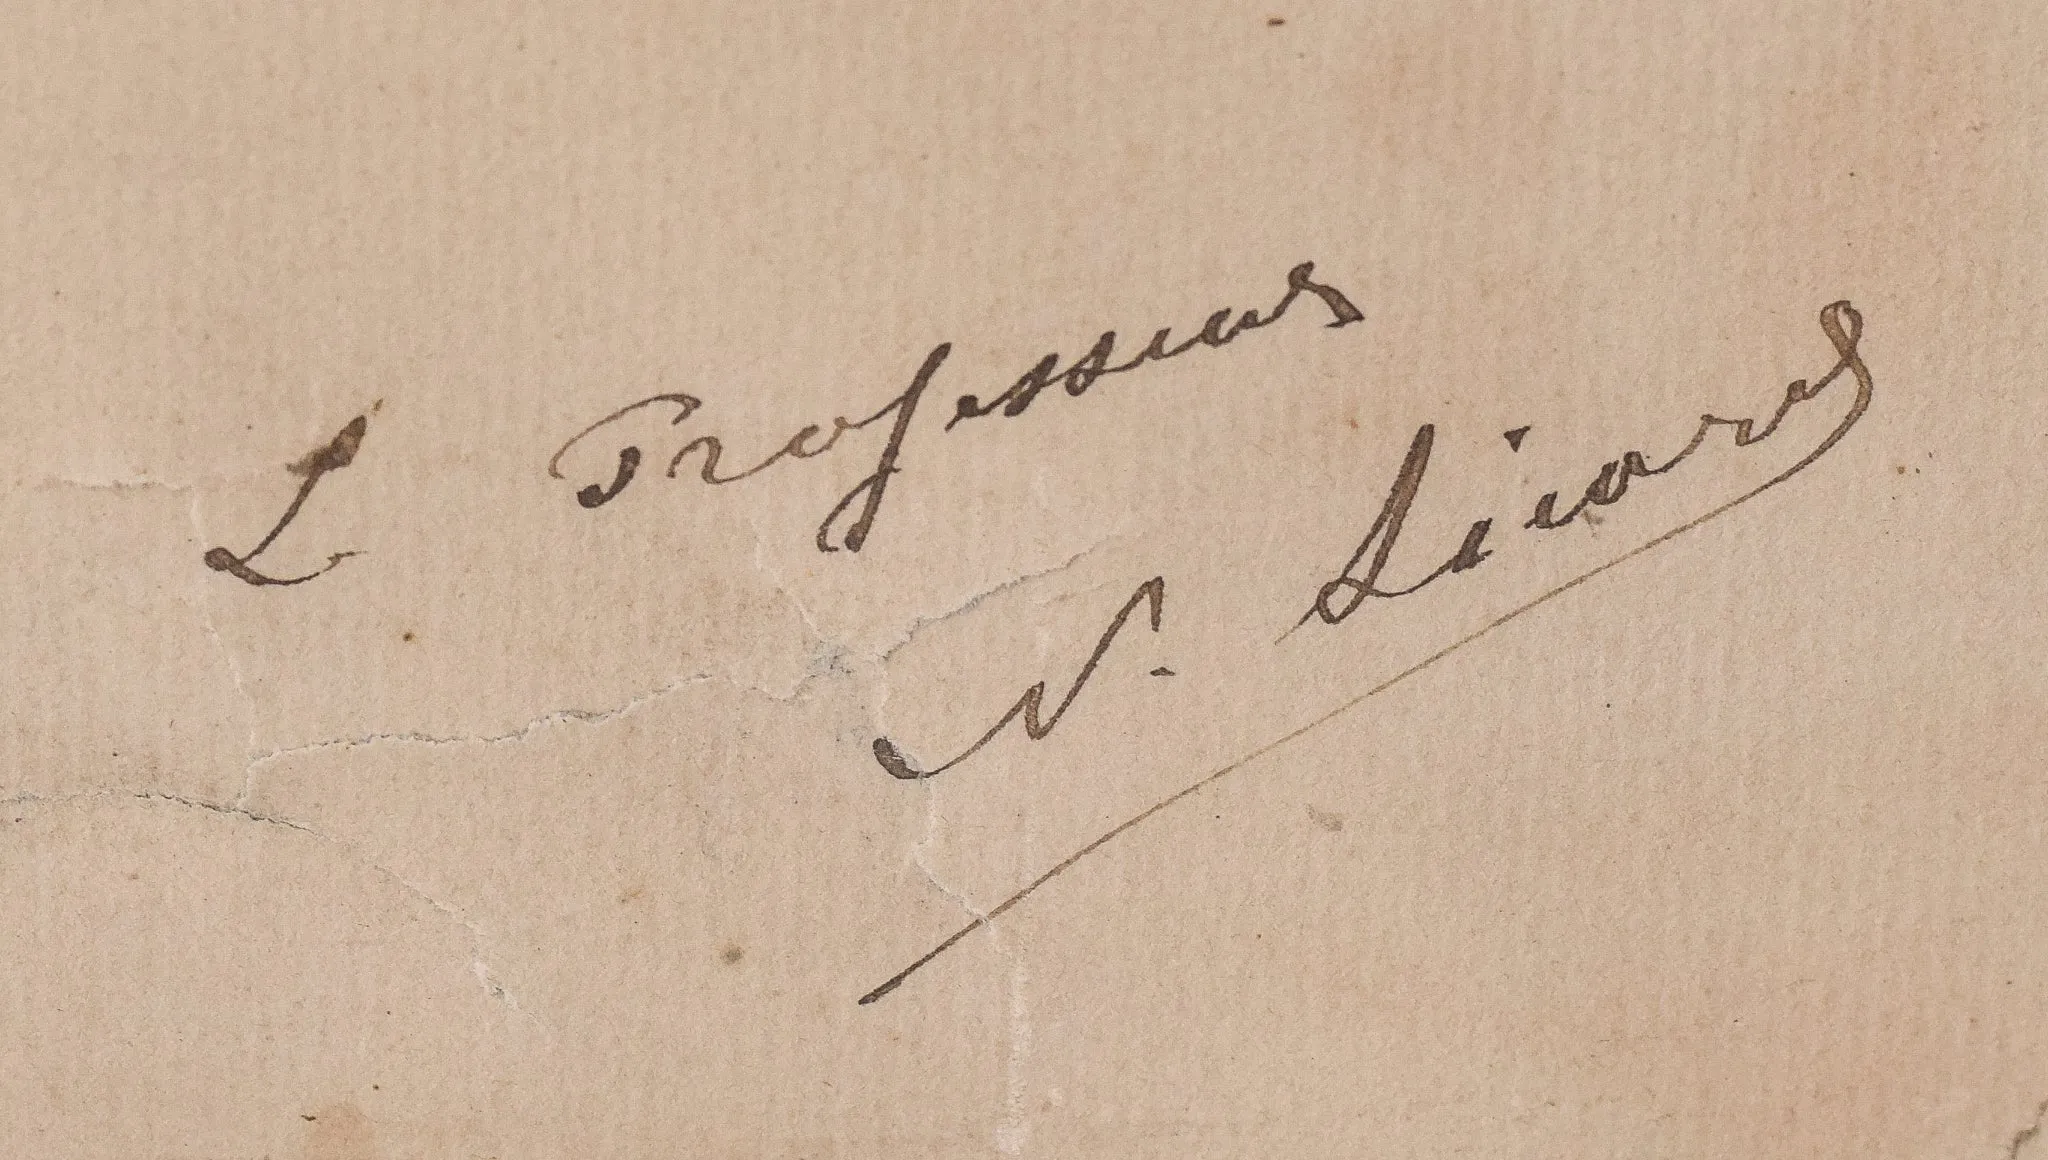 L Professeur
N. Sicard